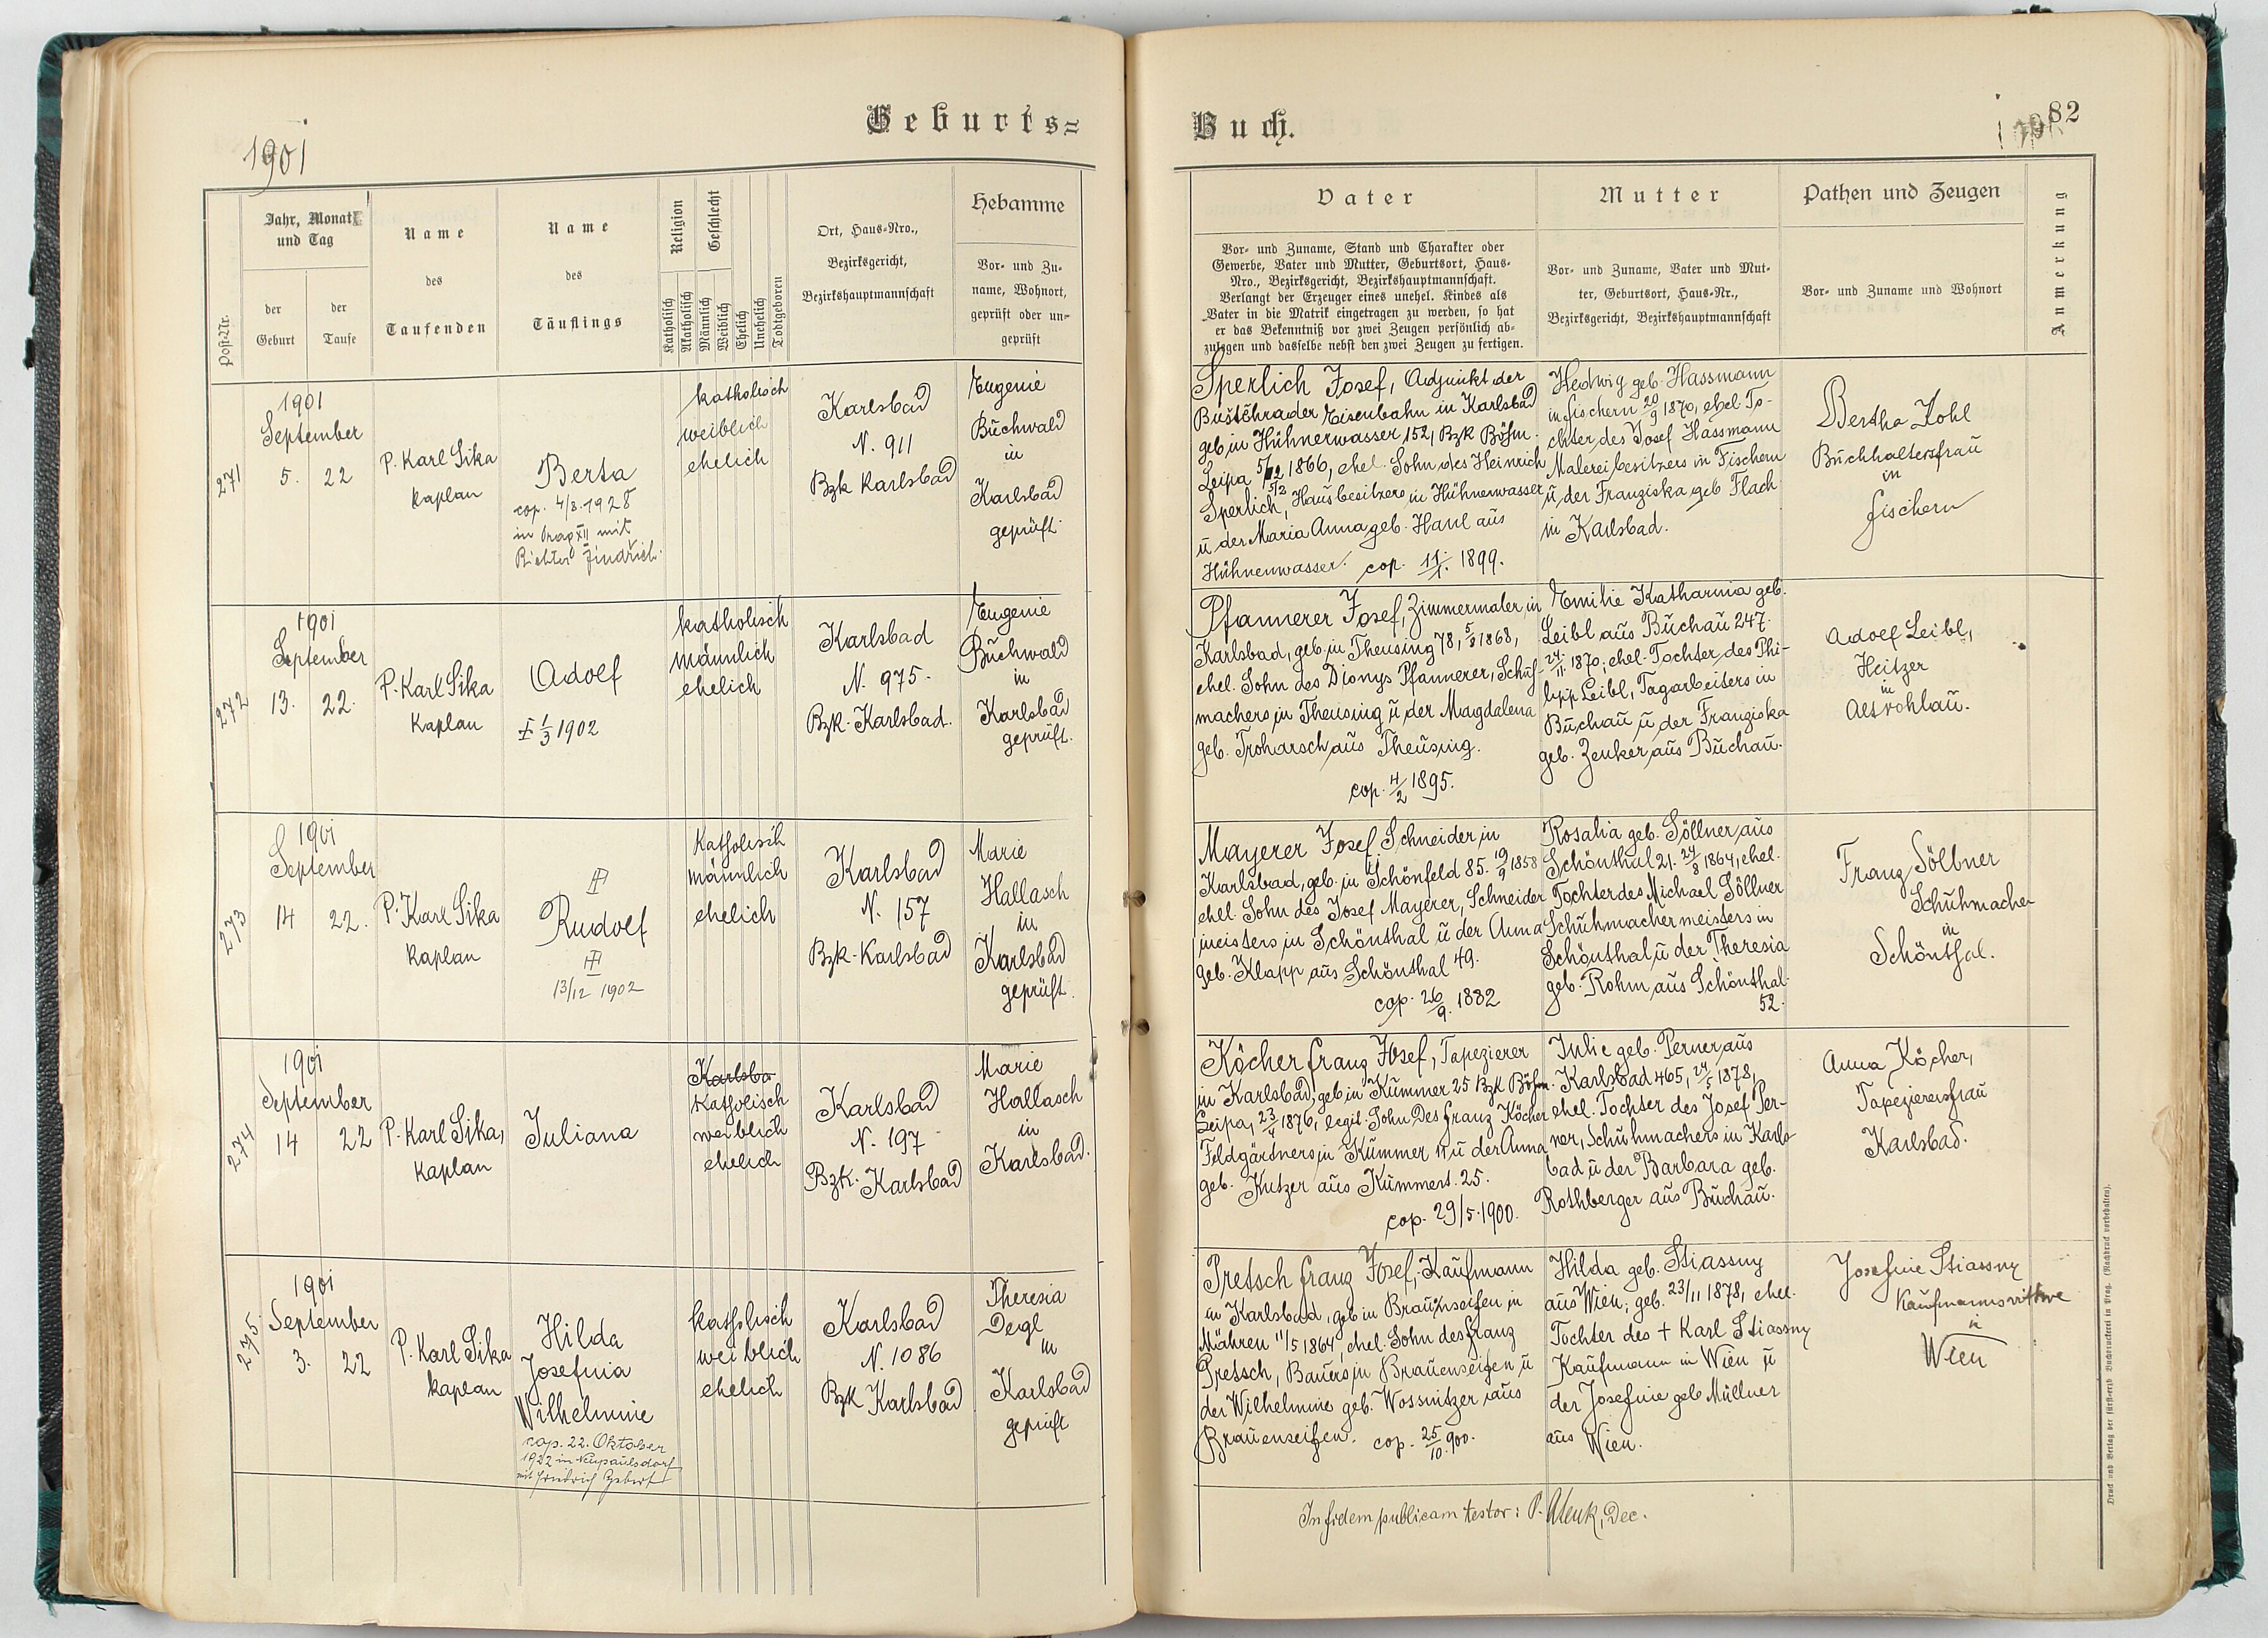 Geburts=
1901
Post-Nr.
Jahr, Monat
und Tag
der
Geburt
der
Taufe
Name
des
Taufenden
Name
des
Täuflings
Religion
Geschlecht
Katholisch
Akatholisch
Männlich
Weiblich
Ehelich
Unehelich
Todtgeboren
Ort, Haus-Nro.,
Bezirksgericht,
Bezirkshauptmannschaft
Hebamme
Vor- und Zu-
name, Wohnort,
geprüft oder un-
geprüft
271
1901
September
5. 22
P. Karl Sika
Kaplan
Berta
cop. 4/8.1928
in Prag XII mit
Richter Jindřich.
katholisch
weiblich
ehelich
Karlsbad
N. 911
Bzk Karlsbad
Eugenie
Buchwald
in
Karlsbad
geprüft.
272
1901
September
13. 22.
P. Karl Sika
Kaplan
Adolf
1/3 1902
katholisch
männlich
ehelich
Karlsbad
N. 975.
Bzk. Karlsbad.
Eugenie
Buchwald
in
Karlsbad
geprüft.
273
1901
September
14 22.
P. Karl Sika
Kaplan
Rudolf
13/12 1902
Katholisch
männlich
ehelich
Karlsbad
N. 157
Bzk. Karlsbad
Marie
Hallasch
in
Karlsbad
geprüft.
274
1901
September
14 22
P. Karl Sika,
Kaplan
Juliana
Karlsba
Katholisch
weiblich
ehelich
Karlsbad
N. 197
Bzk. Karlsbad
Marie
Hallasch
in
Karlsbad.
275.
1901
September
3. 22
P. Karl Sika
Kaplan
Hilda
Josefina
Wilhelmine
cop. 22. Oktober
1922 in Neupaulsdorf
mit Friedrich
katholisch
weiblich
ehelich
Karlsbad
N. 1086
Bzk Karlsbad
Theresia
Deigl
in
Karlsbad
geprüft
Buch.
82
Vater
Vor- und Zuname, Stand und Charakter oder
Gewerbe, Vater und Mutter, Geburtsort, Haus-
Nro., Bezirksgericht, Bezirkshauptmannschaft.
Verlangt der Erzeuger eines unehel. Kindes als
Vater in die Matrik eingetragen zu werden, so hat
er das Bekenntniß vor zwei Zeugen persönlich ab-
zulegen und dasselbe nebst den zwei Zeugen zu fertigen.
Mutter
Vor- und Zuname, Vater und Mut-
ter, Geburtsort, Haus-Nr.,
Bezirksgericht, Bezirkshauptmannschaft
Pathen und Zeugen
Vor- und Zuname und Wohnort
Anmerkung
Sperlich Josef, Adjunkt der
Buštěhrader Eisenbahn in Karlsbad
geb in Hühnerwasser 152, Bzk Böhm.
Leipa 5/12 1866, ehel. Sohn des Heinrich
Sperlich, Hausbesitzers in Hühnerwasser
u der Maria Anna geb. Hanl aus
Hühnerwasser. cop. 11/1. 1899.
Hedwig geb. Hassmann
in Fischern 20/9 1870, ehel. To-
chter des Josef Hassmann
Malereibesitzers in Fischern
u der Franziska geb Flach
in Karlsbad.
Bertha
Buchhaltersfrau
in
Fischern
Pfannerer Josef, Zimmermaler in
Karlsbad, geb. in Theusing 78, 5/8 1868,
ehel. Sohn des Dionys Pfannerer, Schuh-
machers in Theusing u der Magdalena
geb. Troharsch aus Theusing.
cop. 4/2 1895.
Emilie Katharina geb.
Leibl aus Buchau 247.
24./11 1870, ehel. Tochter des Phi-
lipp Leibl, Tagarbeiters in
Buchau u der Franziska
geb. Zenker aus Buchau.
Adolf Leibl,
Heitzer
in
Altrohlau.
Mayerer Josef, Schneider in
Karlsbad, geb. in Schönfeld 85. 19/9 1858
ehel. Sohn des Josef Mayerer, Schneider
meisters in Schönthal u der Anna
geb. Klapp aus Schönthal 49.
cop. 26/9. 1882
Rosalia geb. Söllner aus
Schönthal 21. 24/8 1864, ehel.
Tochter des Michael Söllner
Schuhmachermeisters in
Schönthal u der Theresia
geb. Rohm aus Schönthal
52.
Franz Söllner
Schuhmacher
in
Schönthal.
Köcher Franz Josef, Tapezierer
in Karlsbad, geb in Kummer 25 Bzk Böhm.
Leipa, 23/4 1876, legit. Sohn des Franz Köcher
Feldgärtners in Kummer 11 u der Anna
geb. Kutzer aus Kummer. 25.
cop. 29/5.1900.
Julie geb. Perner aus
Karlsbad 465, 24/5 1878,
ehel. Tochter des Josef Per-
ner, Schuhmachers in Karls
bad u der Barbara geb.
Rothberger aus Buchau.
Anna Köcher,
Tapezierersfrau
Karlsbad.
Pretsch Franz Josef, Kaufmann
in Karlsbad, geb in Braunseifen in
Mähren 11/5 1864, ehel. Sohn des Franz
Pretsch, Bauers in Brauenseifen u
der Wilhelmine geb. Wossnitzer aus
Brauenseifen. cop. 25/10 .900.
Hilda geb. Stiassny
aus Wien, geb. 23/11 1878, ehel.
Tochter des + Karl Stiassny
Kaufmann in Wien u
der Josefine geb Müllner
aus Wien.
Josefine Stiassny
Kaufmannswitwe
in
Wien
In fidem publicam testor: P. Dec.
Druck und Verlag der fürst-erzb Buchdruckerei in Prag. (Nachdruck vorbehalten).